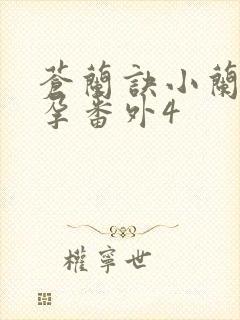 蒼蘭訣小蘭
孕番外4
權寧世